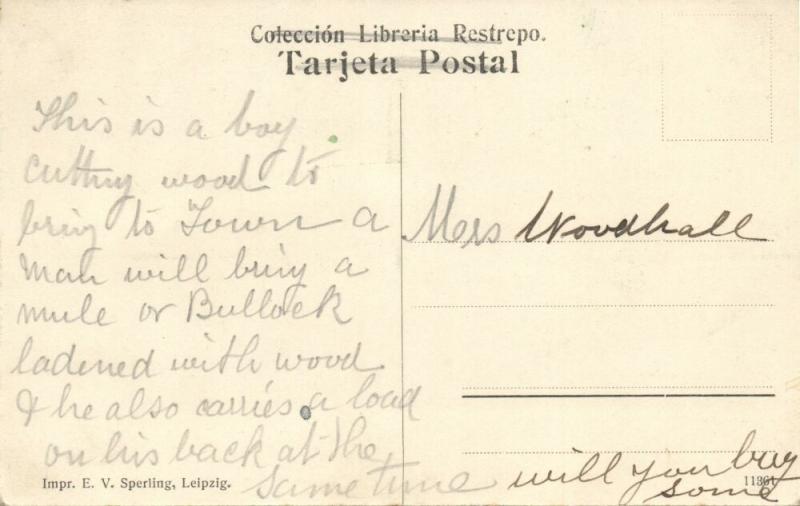 Colección Libreria Restrepo.
Tarjeta Postal
This is a boy
cutting wood to
bring to Town a
man will bring a
mule or Bullock
ladened with wood
& he also carries a load
on his back at the
same time will you buy
some
Mrs Woodhall
Impr. E. V. Sperling, Leipzig.